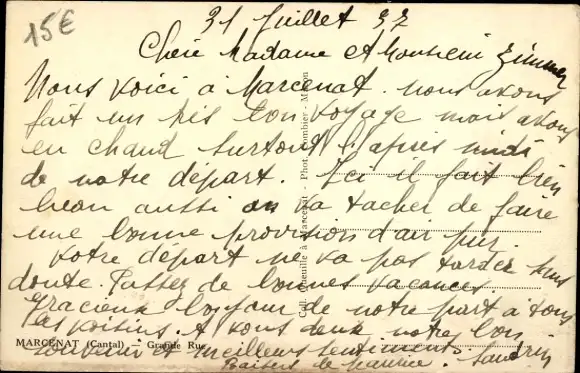 15€
31 Juillet 37
Chère Madame et Monsieur Zimmer
Nous voici à Marcenat. nous avons
fait un très bon voyage mais avons
eu chaud surtout l'après midi
de notre départ. Ici il fait bien
beau aussi on va tacher de faire
une bonne provision d'air pur.
Votre départ ne va pas tarder sans
doute. Passez de bonnes vacances.
Gracieux bonjour de notre part à tous
les voisins. A vous deux notre bon
souvenir et meilleurs sentiments.
Baisers de
MARCENAT (Cantal) - Grande Rue
Marcenat - Phot. Combier